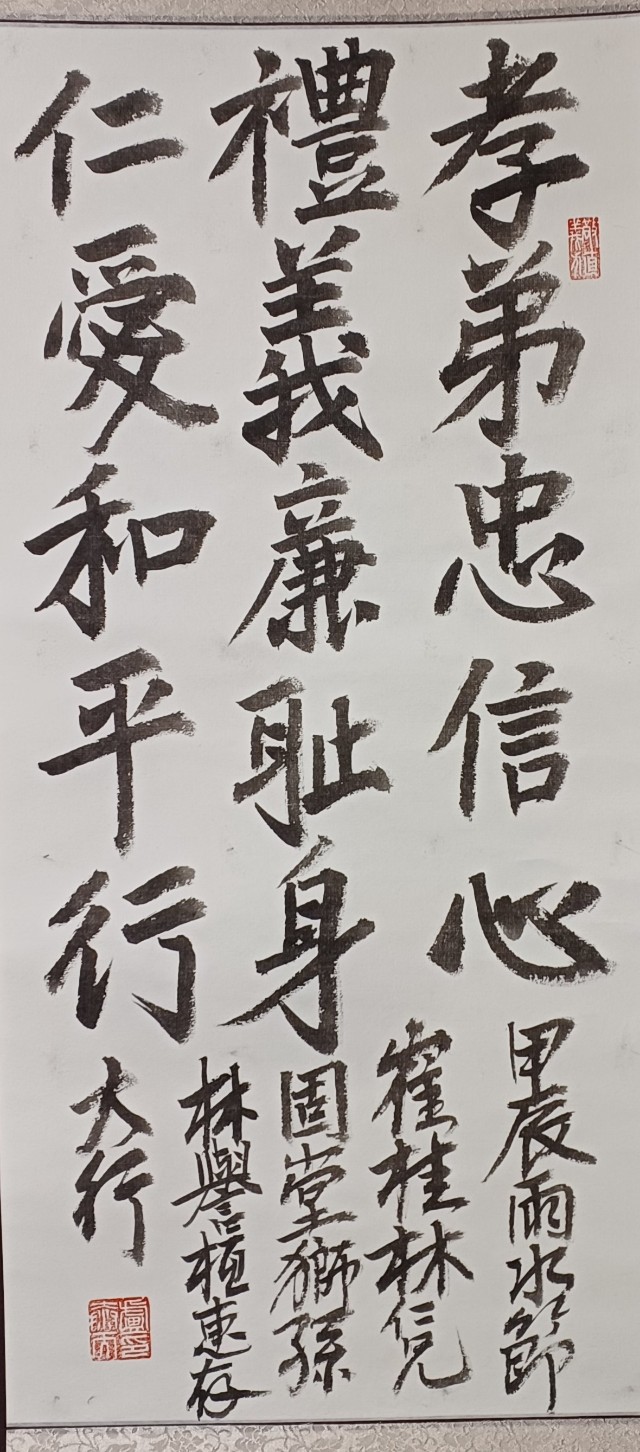 孝弟忠信心
禮義廉耻身
仁愛和平行
甲辰雨水節
霍桂林
固堂獅孫
林譽桓惠存
大行